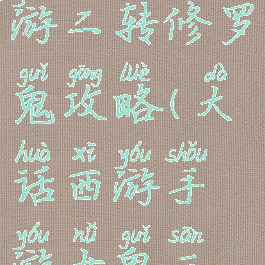 游二转修罗
guǐ gōng lüè dà
鬼攻略(大
huà xī yóu shǒu
话西游手
yóu nǚ guǐ sān
游女鬼三